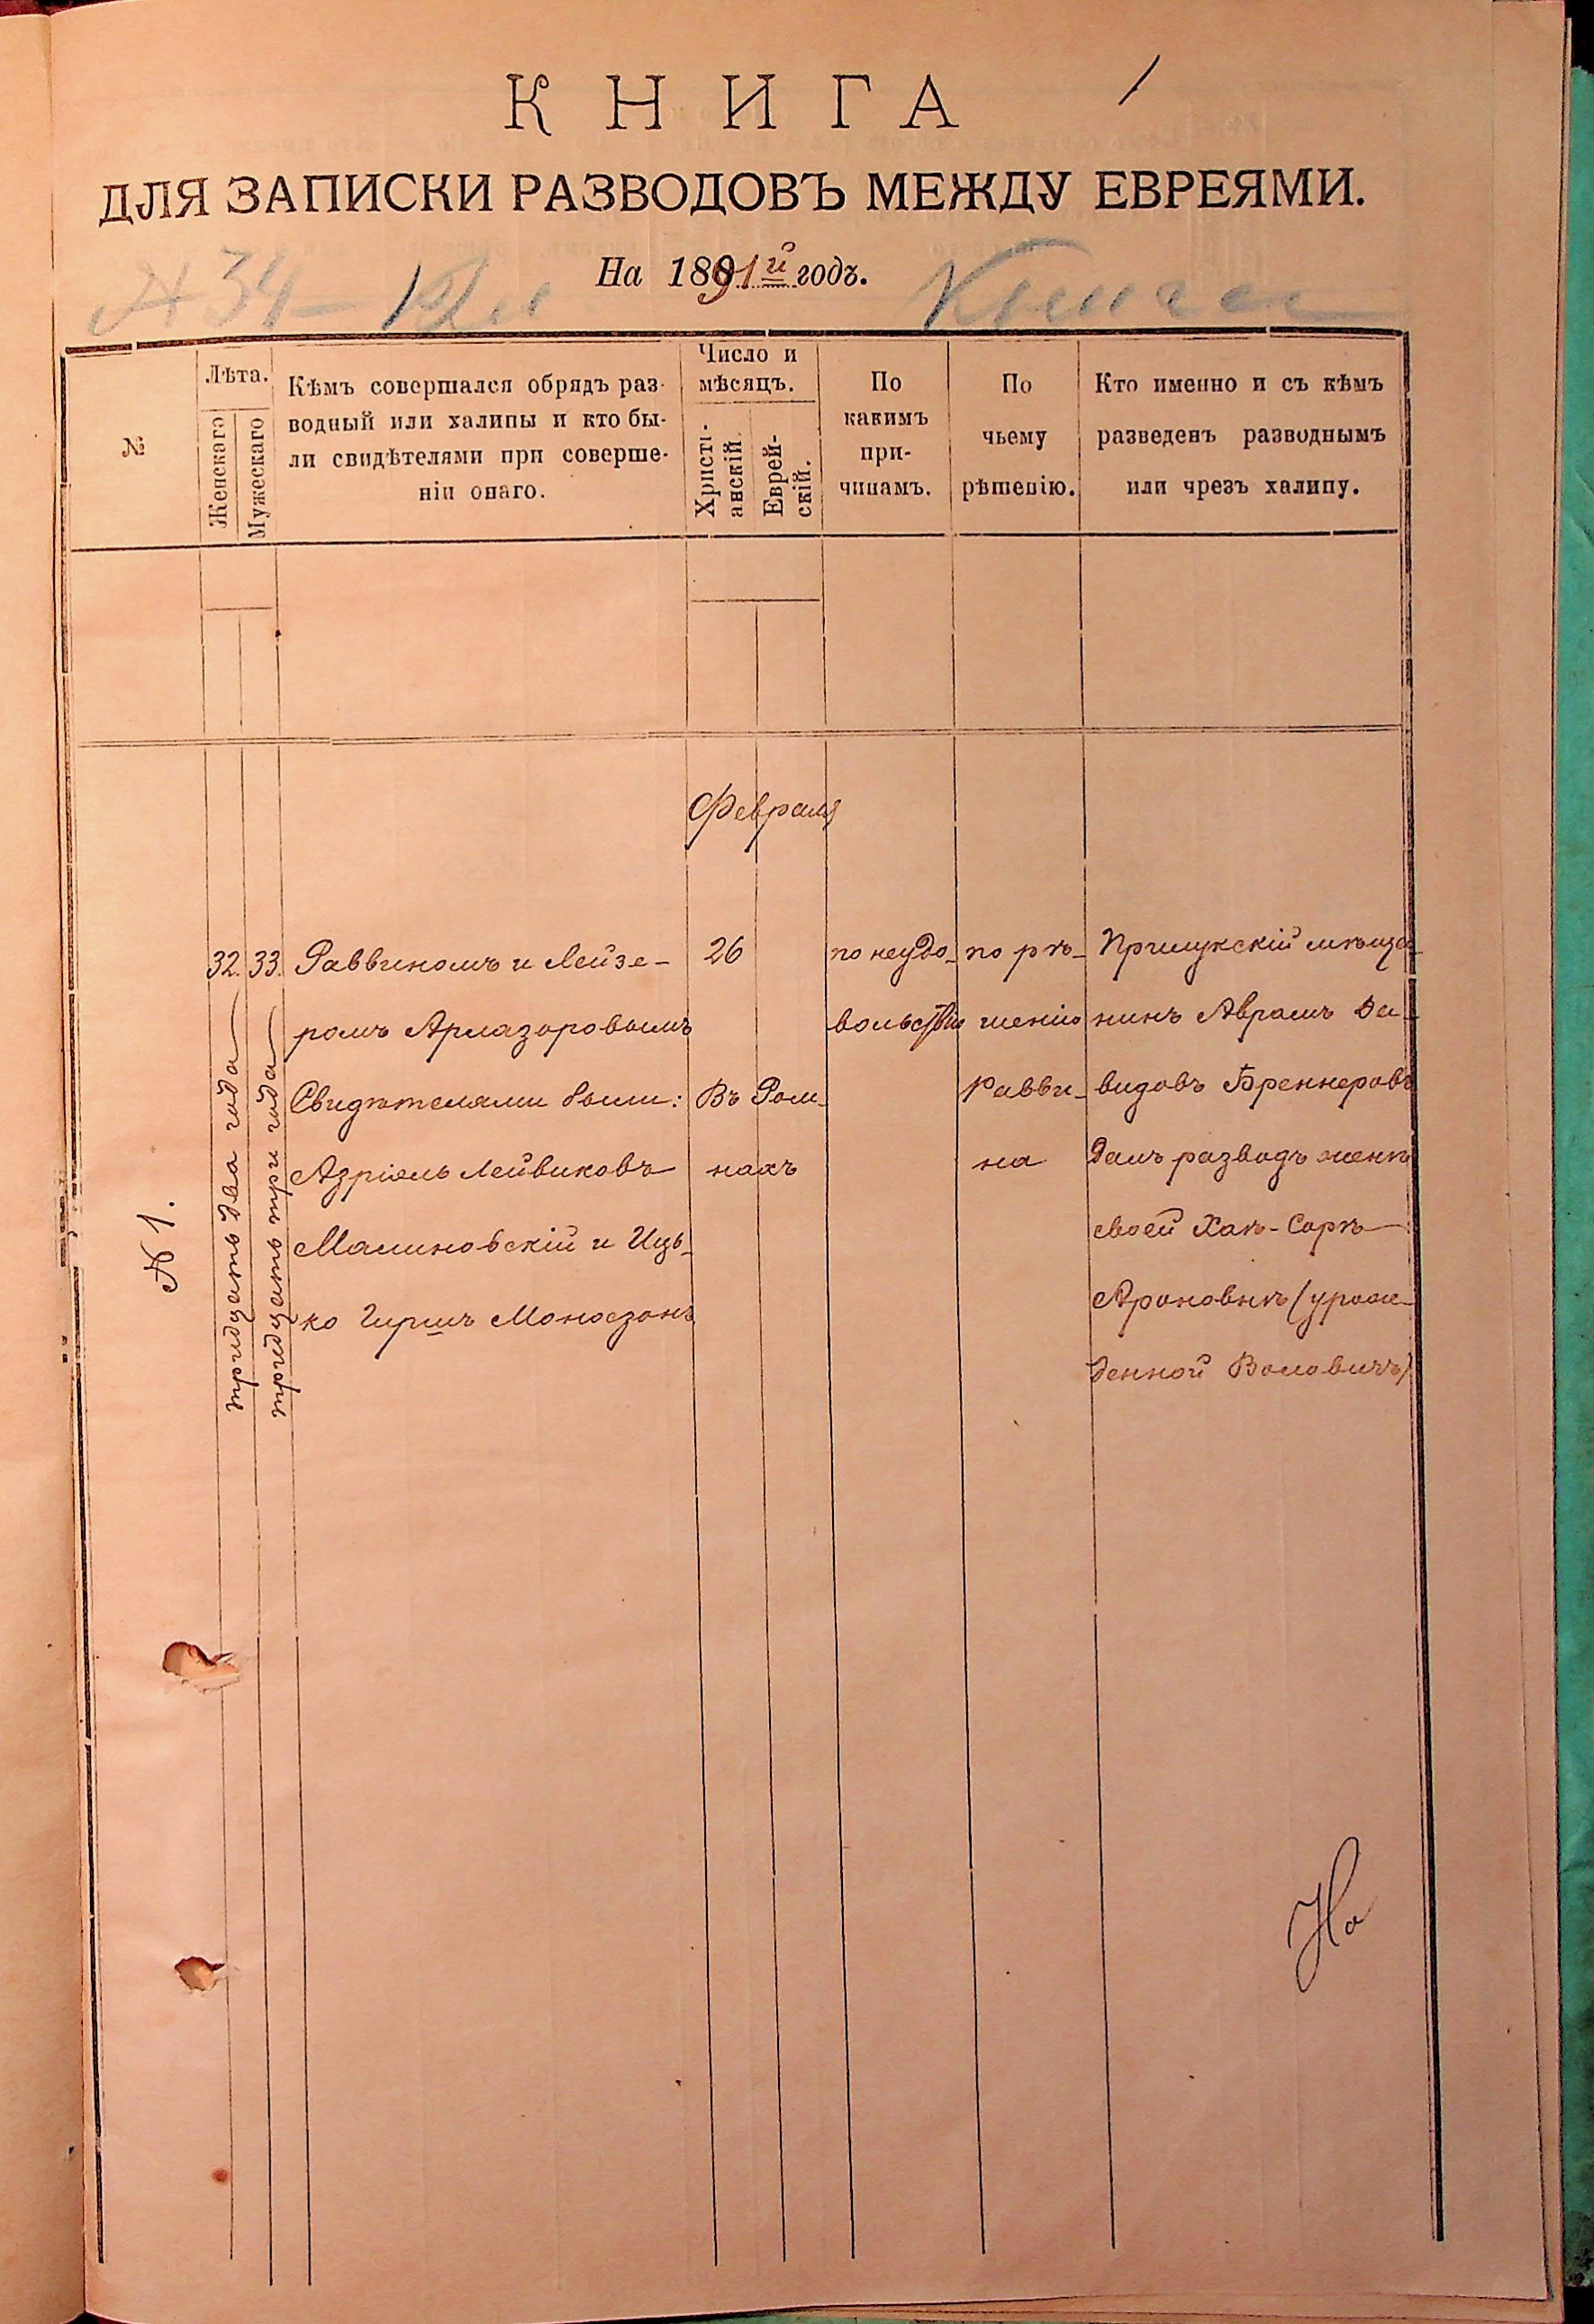 КНИГА
ДЛЯ ЗАПИСКИ РАЗВОДОВЪ МЕЖДУ ЕВРЕЯМИ.
На 1891й годъ.
№ 34
№
Лѣта.
Женскаго
Мужескаго
Кѣмъ совершался обрядъ раз-
водный или халицы и кто бы-
ли свидѣтелями при соверше-
ніи онаго.
Число и
мѣсяцъ.
Христі-
анскій.
Еврей-
скій.
По
какимъ
при-
чинамъ.
По
чьему
рѣшенію.
Кто именно и съ кѣмъ
разведенъ разводнымъ
или чрезъ халицу.
Февраля
№ 1.
32.
тридцать два года
33.
тридцать три года
Раввиномъ и Лейзе-
ромъ Арлазоровымъ
Свидѣтелями были:
Азріель Лейвиковъ
Малиновскій и Иць-
ко Гиршъ Моносзонъ
26
Въ Ром-
нахъ
по неудо-
вольствію
по рѣ-
шенію
Равви-
на
Прилукскій мѣща-
нинъ Аврамъ Да-
видовъ Бреннеровъ
Далъ разводъ женѣ
своей Хаѣ-Сорѣ
Ароновнѣ (урож-
денной Воловичъ)
На